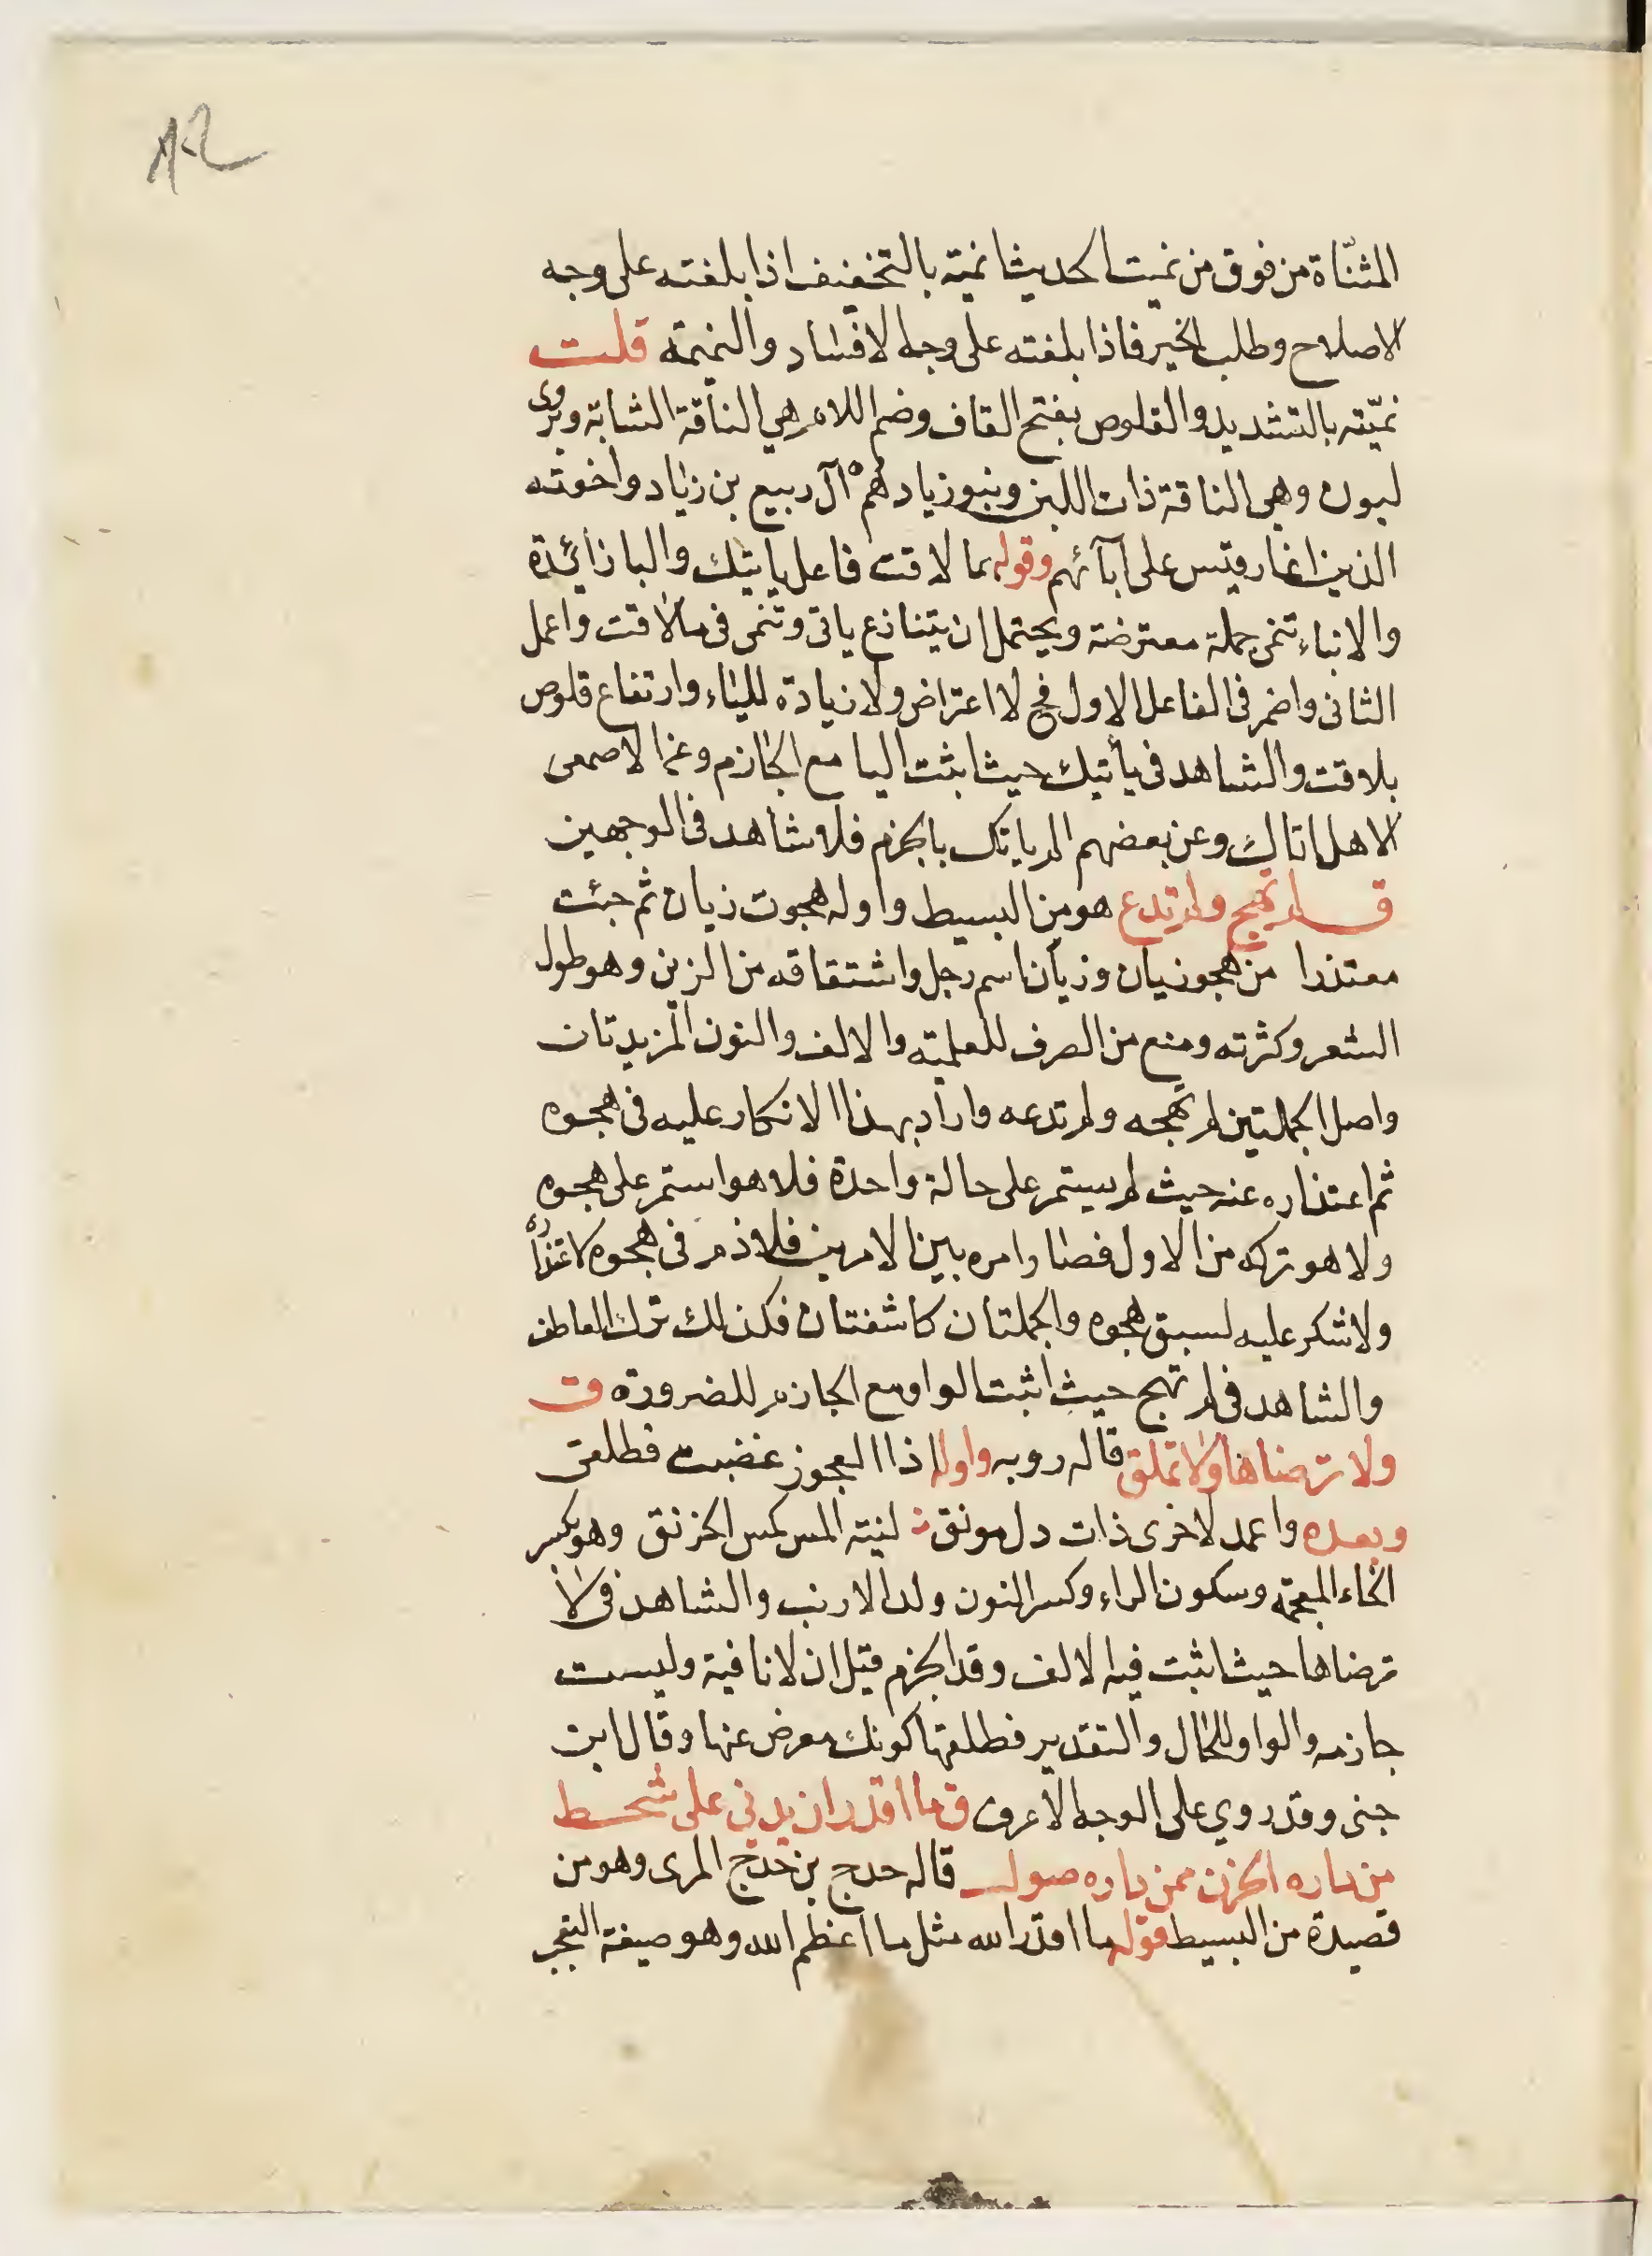 ١٢
المثنّاة من فوق من نميت الحديث انميه بالتخفيف اذا بلغته على وجه
الاصلاح وطلب الخير فاذا بلغته على وجه الافساد والنميمه قلت
نميّته بالتشديد والقلوص بفتح القاف وضم اللام هي الناقة الشابة ويروى
لبون وهي الناقة ذات اللبن وبنو زياد هم آل ربيع بن زياد واخوته
الذين اغار قيس على ابآئهم وقوله بما لاقت فاعل ياتيك والبا زائدة
والانباء تنمى جملة معترضة ويحتمل ان يتنازع ياتى وتنمى فى ما لاقت واعمل
الثانى واضمر فى الفاعل الاول فح لا اعتراض ولا زيادة للباء وارتفاع قلوص
بلاقت والشاهد فى يأتيك حيث اثبت اليا مع الجازم وعن الاصمعى
الا هل اتاك وعن بعضهم الم ياتك بالجزم فلا شاهد فى الوجهين
ق لم تهجو ولم تدع هو من البسيط واوله هجوت زبان ثم جئت
معتذرا من هجو زبان وزبان اسم رجل واشتقاقه من الزبن وهو طول
الشعر وكثرته ومنع من الصرف للعلميه والالف والنون المزيدتان
واصل الجملتين لم تهجه ولم تدعه واراد بهذا الانكار عليه فى هجوه
ثم اعتذاره عنه حيث لم يستمر على حالة واحدة فلا هو استمر على هجوه
ولا هو تركه من الاول فصار امره بين الامرين فلا ذم فى هجوه لاعتذاره
ولا شكر عليه لسبق هجوه والجملتان كاشفتان فكذلك ترك العاطف
والشاهد فى لم تهجو حيث اثبت الواو مع الجازم للضرورة ق
ولا ترضاها ولا تملق قاله روبه واوله اذا العجوز غضبت فطلق
وبعده واعمد لاخرى ذات دل مونق لينة المس كمس الخرنق وهو بكسر
الخاء المعجمة وسكون الراء وكسر النون ولد الارنب والشاهد فى لا
ترضاها حيث اثبت فيه الالف وقد الجزم قيل ان لا نافية وليست
جازمه والواو للحال والتقدير فطلقها كونك معرض عنها وقال ابن
جنى وقد روي على الوجه الاعرف ق ما اقدر ان يدنى على شحط
من داره الحزن ممن داره صول قاله حدج بن حدج المرى وهو من
قصيدة من البسيط قوله ما اقدر الله مثل ما اعظم الله وهو صيغة التعجب